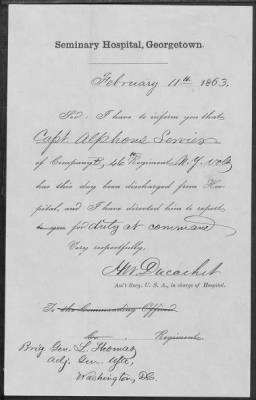 Seminary Hospital, Georgetown.
February 11th 1863.
Sir: I have to inform you that
Capt Alphons Servier
of Company B, 46th Regiment N.Y. Vols
has this day been discharged from Hos-
pital, and I have directed him to report
to you for duty at command
Very respectfully,
HW. Ducachet
Ass't Surg. U. S. A., in charge of Hospital.
To the Commanding Officer
Co. Regiment
Brig. Gen. L. Thomas
Adj. Gen.
Washington, D.C.